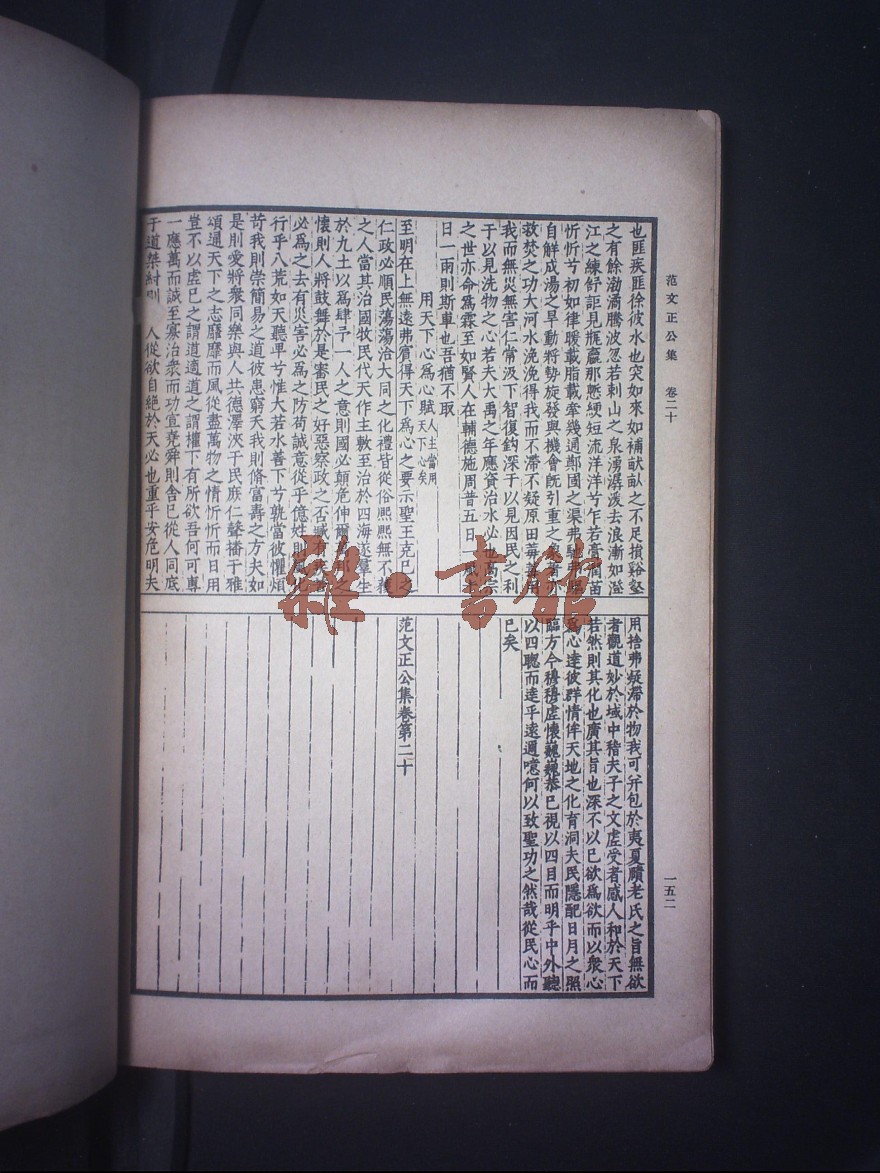 范文正公集 卷二十
一五二
也匪疾匪徐彼水也突如來如補畎畝之不足損谿壑
之有餘渤潏騰波忽若刺山之泉湧潺湲去浪漸如溢
江之練舒詎見瓶羸那慙綆短流洋洋兮乍若膏潤苗
忻忻兮初如律暖載脂載牽幾通鄭國之渠弗馳弗驅
自解成湯之旱動將勢旋發與機會旣引重之
救焚之功大河水浼浼得我而不滯不疑原田莓莓
我而無災無害仁常汲下智復鈎深于以見因民之利
于以見洗物之心若夫大禹之年應資治水必也高宗
之世亦命爲霖至如賢人在輔德施周普五日一風十
日一雨則斯車也吾猶不取
用天下心爲心賦 人主當用天下心矣
至明在上無遠弗賓得天下爲心之要示聖王克已之
仁政必順民蕩蕩洽大同之化禮皆從俗熙熙無不
之人當其治國牧民代天作主敷至治於四海遂羣生
於九土以爲肆予一人之意則國必顛危伸爾
懷則人將鼓舞於是審民之好惡察政之否臧有
必爲之去有災害必爲之防苟誠意從乎億姓則風
行乎八荒如天聽卑兮惟大若水善下兮孰當彼懼煩
苛我則崇簡易之道彼患窮夭我則脩富壽之方夫如
是則愛將衆同樂與人共德澤浹于民庶仁聲播于雅
頌通天下之志靡靡而風從盡萬物之情忻忻而日用
豈不以虛已之謂道適道之謂權下有所欲吾何可專
一應萬而誠至寡治衆而功宣堯舜則舍已從人同底
于道桀紂則 人從欲自絕於天必也重乎安危明夫
用捨弗凝滯於物我可幷包於夷夏賾老氏之旨無欲
者觀道妙於域中稽夫子之文虛受者感人和於天下
若然則其化也廣其旨也深不以已欲爲欲而以衆心
爲心達彼群情侔天地之化育洞夫民隱配日月之照
臨方今穆穆虛懷巍巍恭已視以四目而明乎中外聽
以四聰而達乎遠邇噫何以致聖功之然哉從民心而
已矣
范文正公集卷第二十
雜·書館